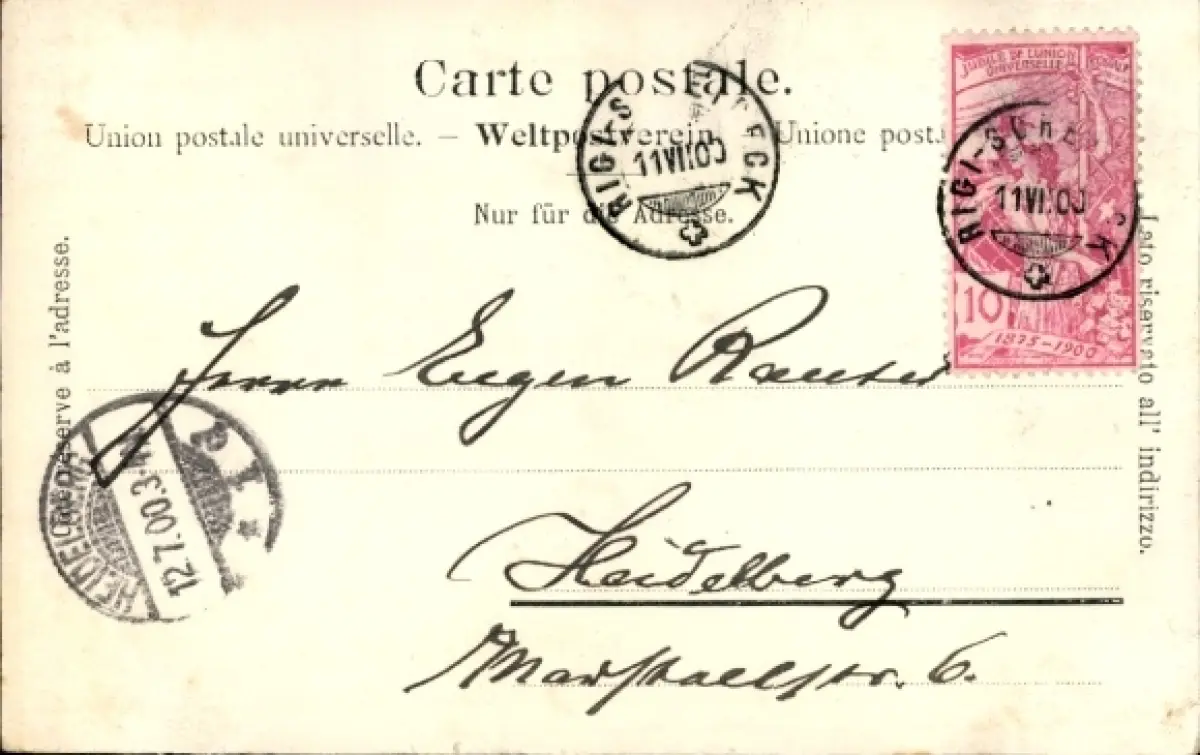 Carte postale.
Union postale universelle. — Weltpostverein. Unione posta
Nur für die Adresse.
RIGI-S ECK
11 VII.00
JUBILÉ DE L'UNION
UNIVERSELLE
RIGI-SCHE CK
11 VII.00
10
1875-1900
réservé à l'adresse.
Lato riservato all' indirizzo.
Herrn Eugen
HEIDELBERG
12.7.00.3-4N.
Heidelberg
Marstallstr. 6.